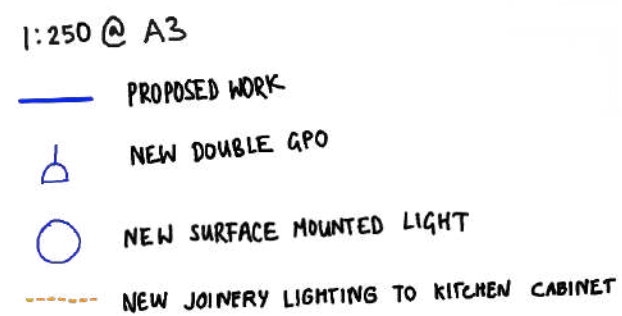 1:250 @ A3
PROPOSED WORK
NEW DOUBLE GPO
NEW SURFACE MOUNTED LIGHT
NEW JOINERY LIGHTING TO KITCHEN CABINET